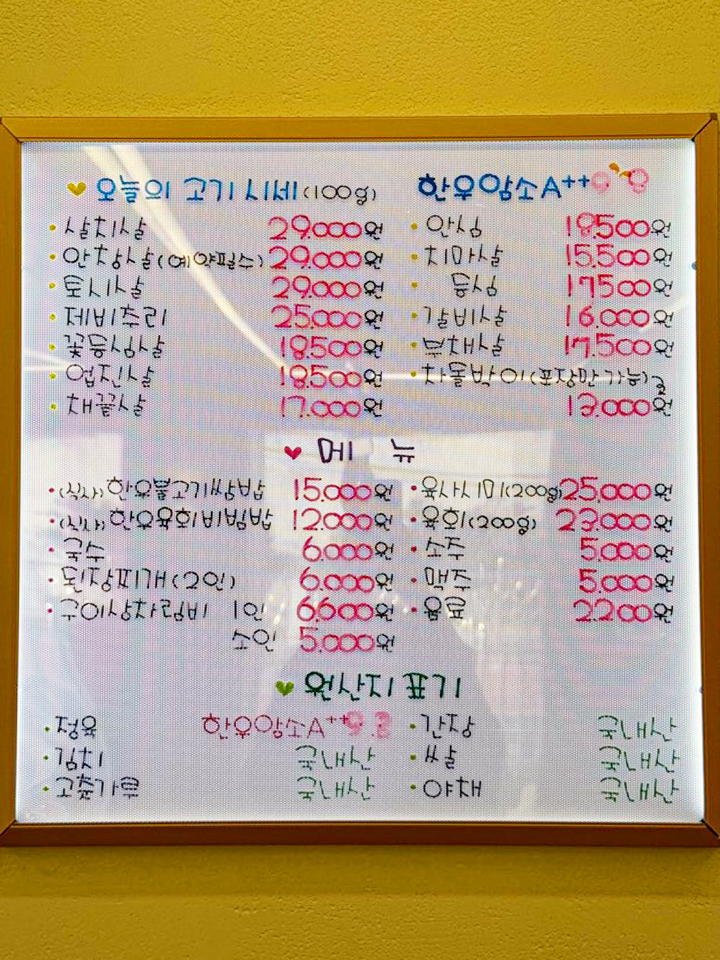 오늘의 고기 시세(100g)
한우암소A++
· 살치살 29.000원
· 안창살(예약필수) 29.000원
· 토시살 29.000원
· 제비추리 25.000원
· 꽃등심살 18.500원
· 업진살 18.500원
· 채끝살 17.000원
· 안심 18.500원
· 치마살 15.500원
등심 17.500원
· 갈비살 16.000원
· 부채살 17.500원
· 차돌박이(포장만가능)
13.000원
메 뉴
· (식사)한우불고기쌈밥 15.000원
· (식사)한우육회비빔밥 12.000원
· 국수 6.000원
· 된장찌개(2인) 6.000원
· 구이상차림비 1인 6.600원
소인 5.000원
· 육사시미(200g) 25.000원
· 육회(200g) 23.000원
· 소주 5.000원
· 맥주 5.000원
· 음료 2.200원
원산지 표기
· 정육 한우암소A++
· 김치 국내산
· 고춧가루 국내산
· 간장 국내산
· 쌀 국내산
· 야채 국내산